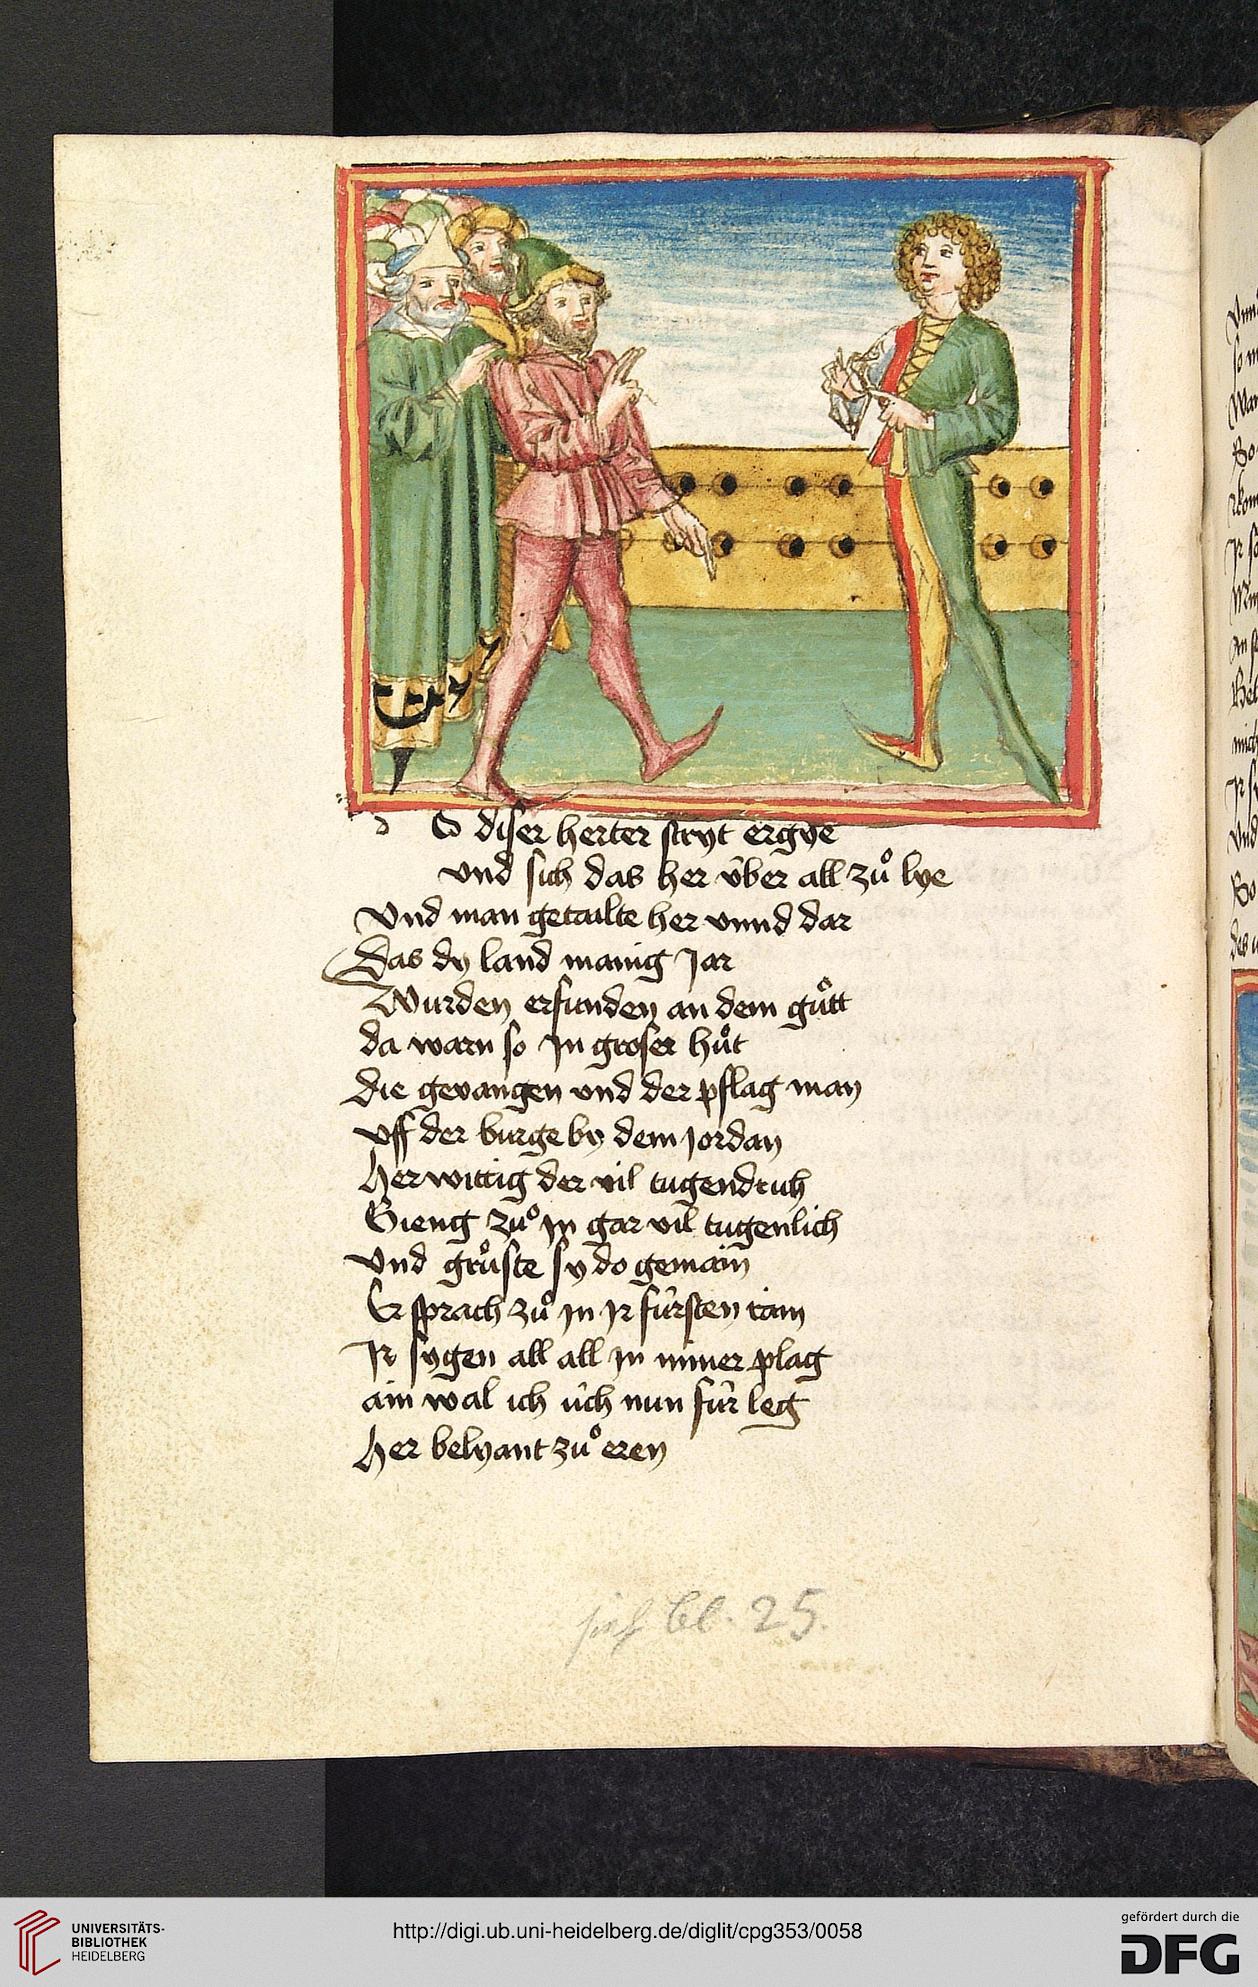 d O diser herter stryt ergye
vnd sich das her v̂ber all zů lye
Vnd man getailte her vnnd dar
Das dy land manig Jar
Wurden erfunden an dem gůtt
da warn so Jn groser hůt
Die gevangen vnd der pflag man
vff der burge by dem Jordan
her wittig der vil tugendrich
Gieng zů Jn gar vil tugenlich
vnd grůste sy do gemain
Er sprach zů Jn Jr fûrsten rain
Jr sygen all all Jn miner plag
ain wal ich ûch nun fûr leg
her belyant zů eren
bl. 25.
UNIVERSITÄTS-
BIBLIOTHEK
HEIDELBERG
http://digi.ub.uni-heidelberg.de/diglit/cpg353/0058
gefördert durch die
DFG